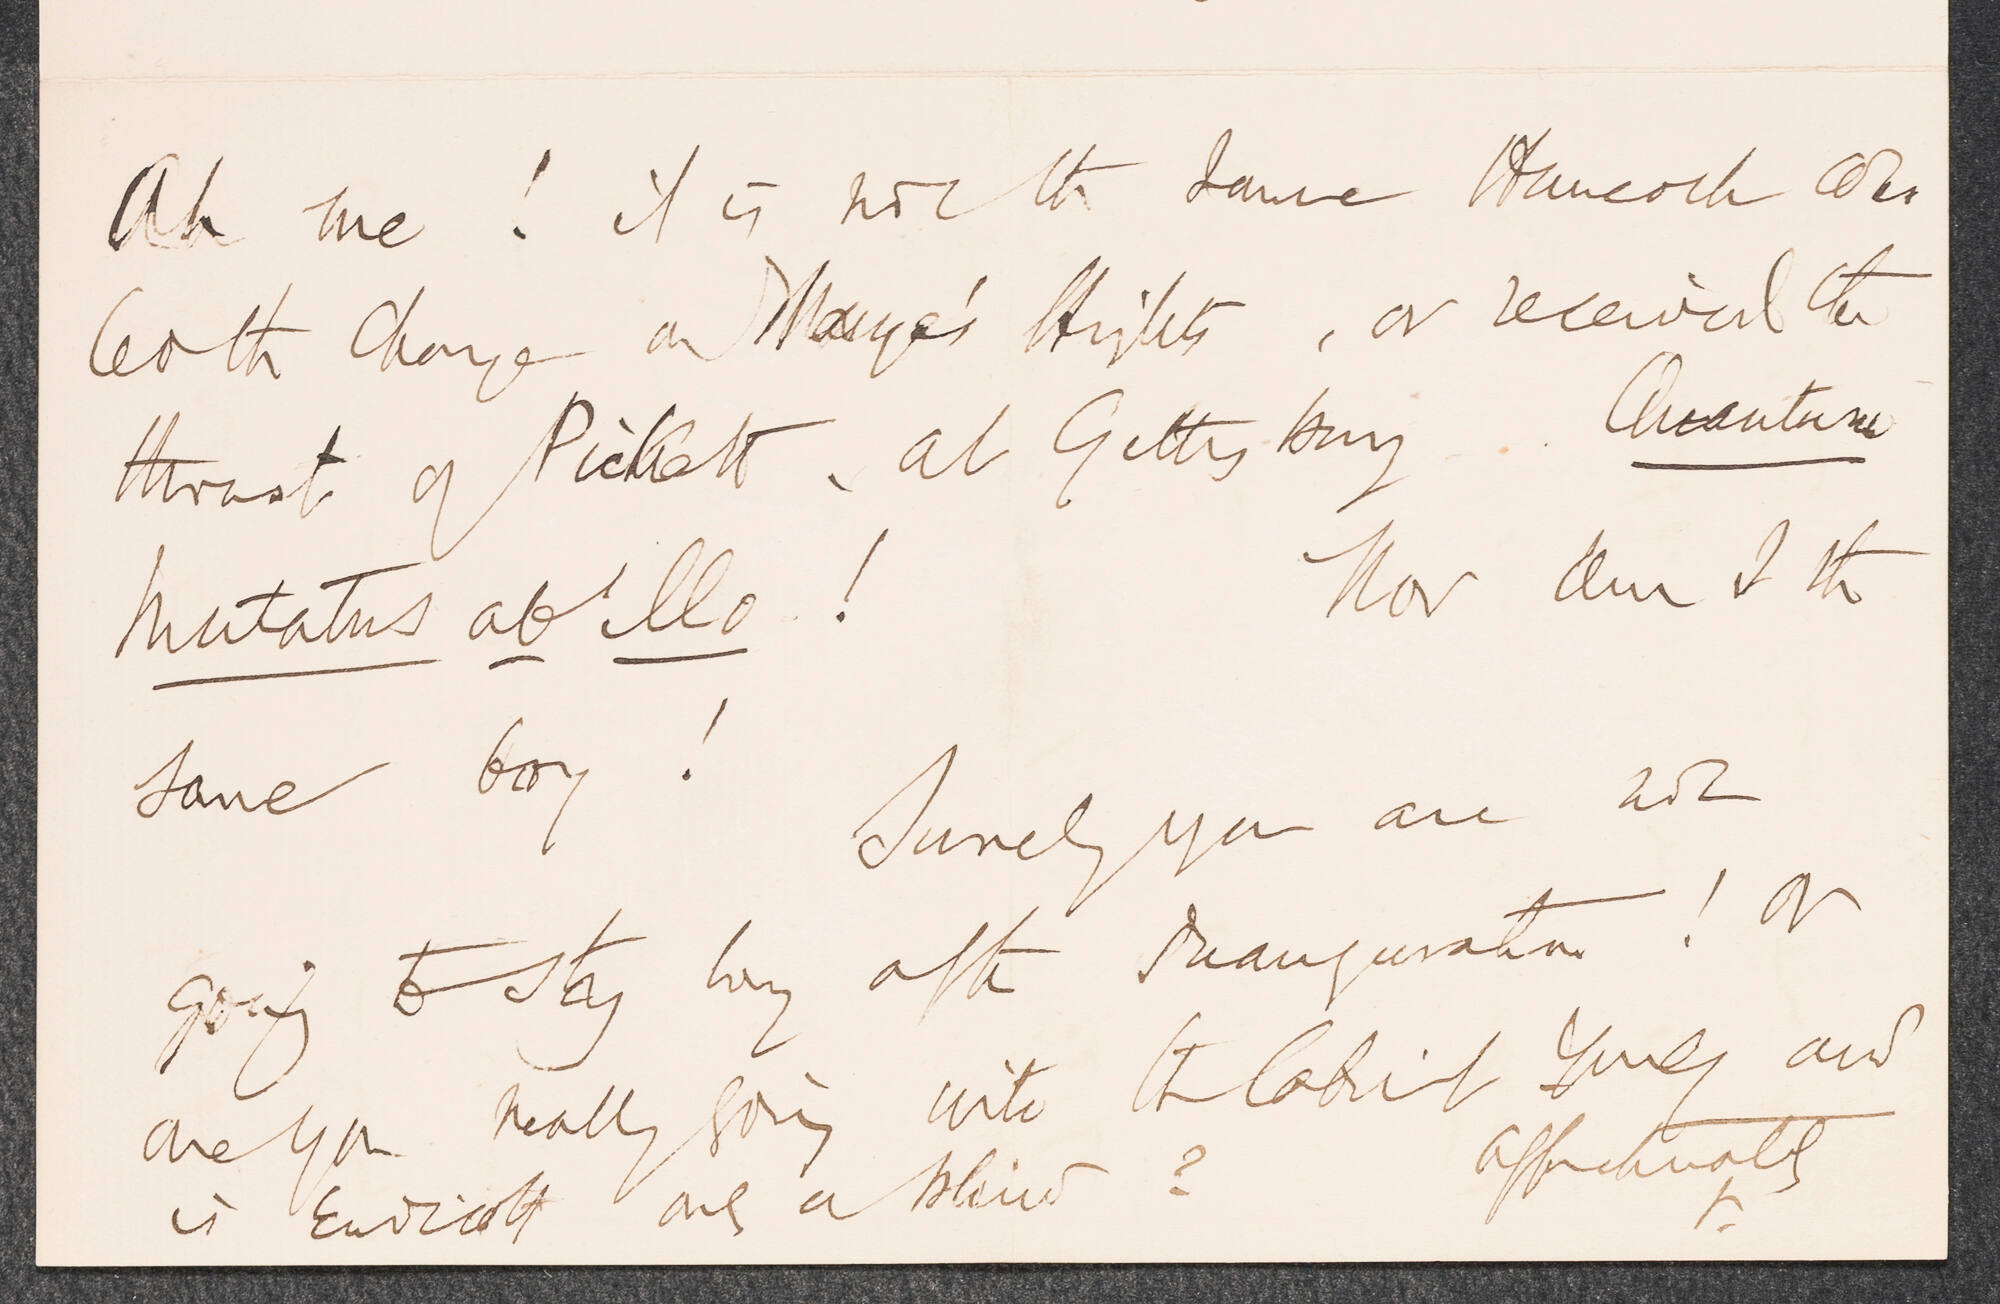 Ah me! it is not the same Hancock who
led the charge on Marye's Heights, or received the
thrust of Pickett, at Gettysburg. Quantum
mutatus ab illo! Nor am I the
same boy!
Surely you are not
going to stay long after Inauguration! or
are you really going into the Cabinet
is Endicott only a blind?
Yours and
affectionately